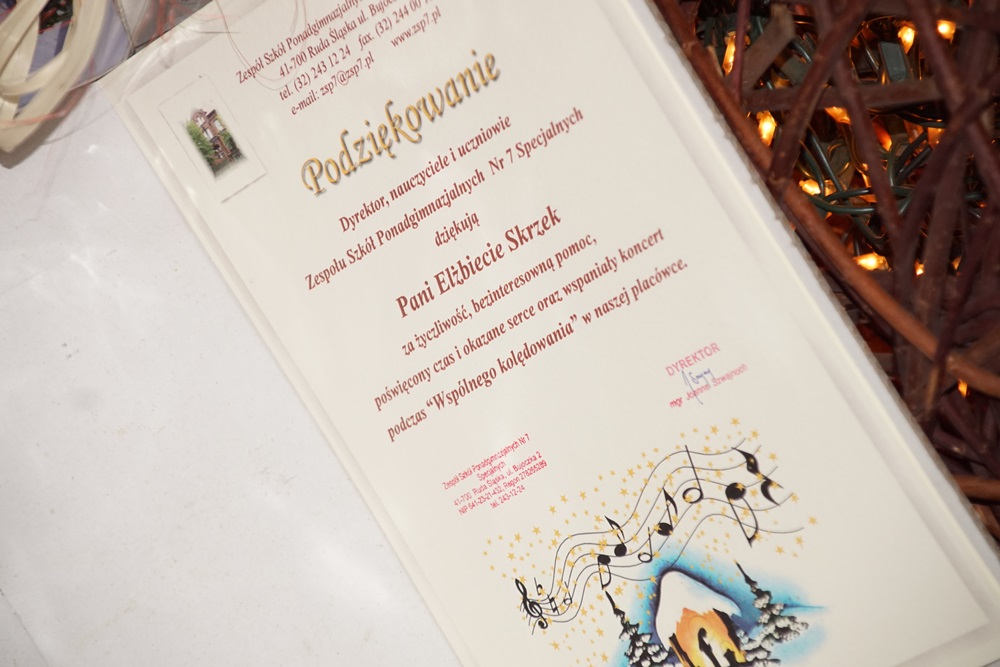 Zespół Szkół Ponadgimnazjalnych
41-700 Ruda Śląska ul. Bujoczka
tel. (32) 243 12 24 fax. (32) 244 00
e-mail: zsp7@zsp7.pl www.zsp7.pl
Podziękowanie
Dyrektor, nauczyciele i uczniowie
Zespołu Szkół Ponadgimnazjalnych Nr 7 Specjalnych
dziękują
Pani Elżbiecie Skrzek
za życzliwość, bezinteresowną pomoc,
poświęcony czas i okazane serce oraz wspaniały koncert
podczas “Wspólnego kolędowania” w naszej placówce.
DYREKTOR
mgr Joanna
Zespół Szkół Ponadgimnazjalnych Nr 7
Specjalnych
41-700 Ruda Śląska, ul. Bujoczka 2
NIP 641-23-21-432, Regon
tel. 243-12-24